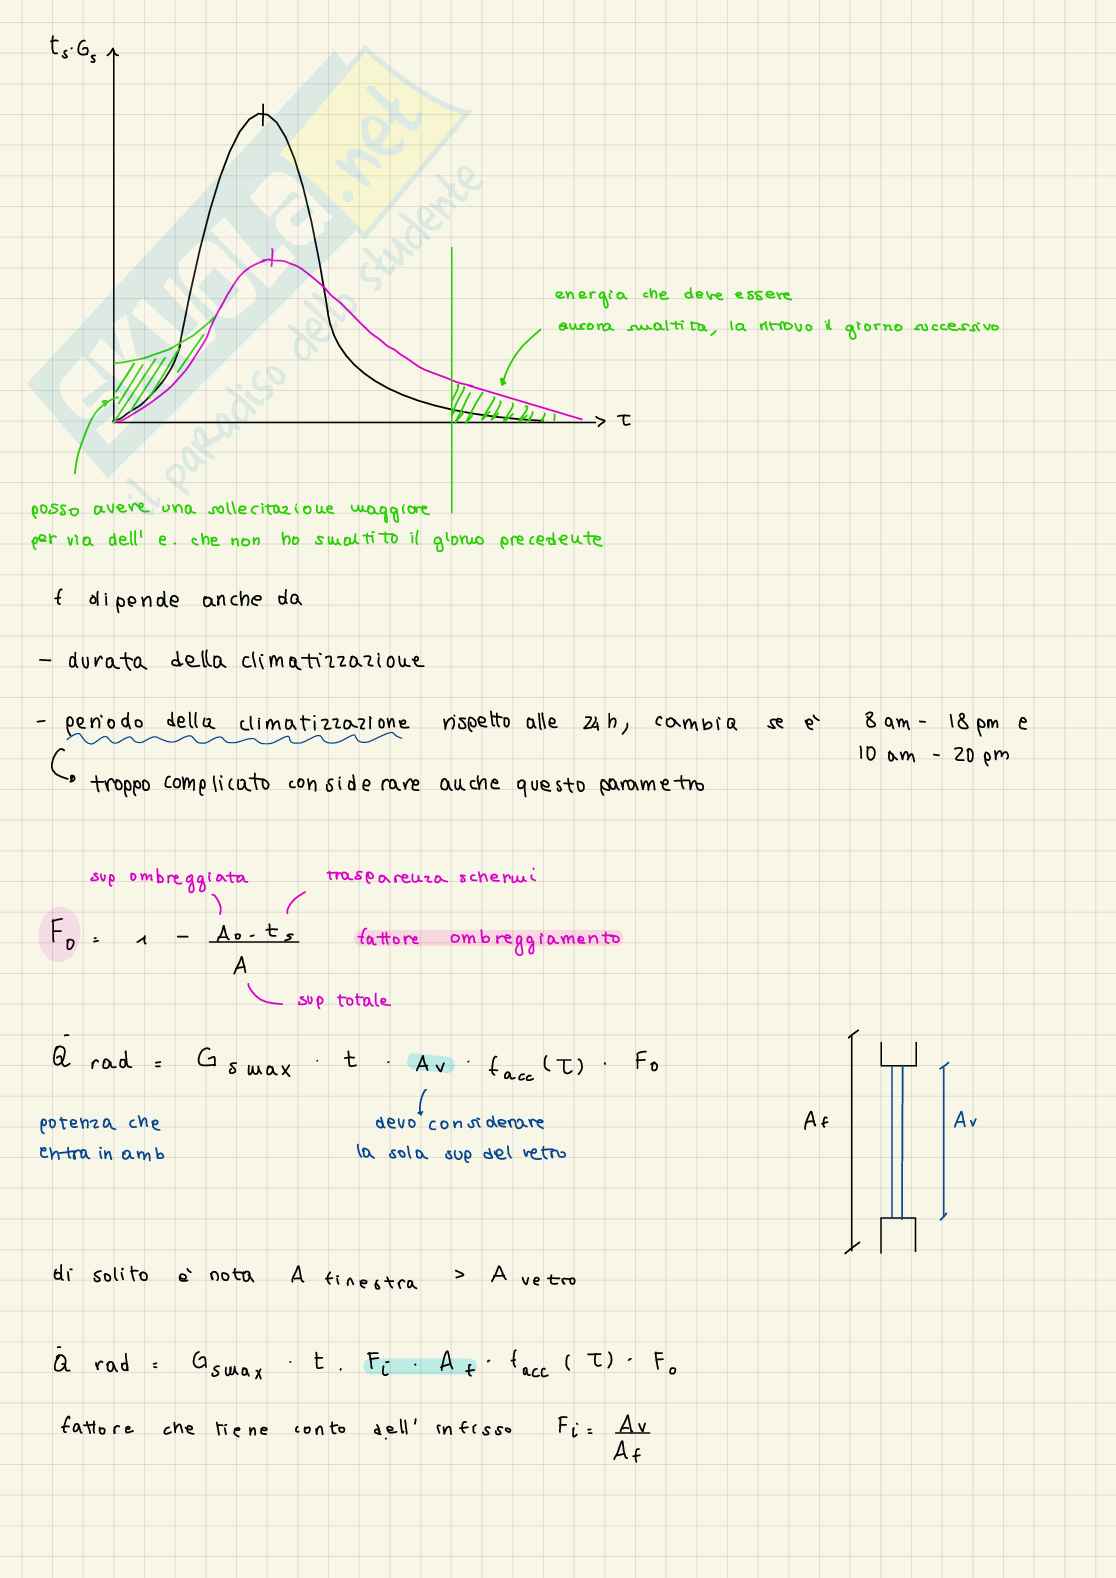 ts·Gs
SKUOLA.net
il paradiso dello studente
energia che deve essere
ancora smaltita, la ritrovo il giorno successivo
τ
posso avere una sollecitazione maggiore
per via dell' e. che non ho smaltito il giorno precedente
f dipende anche da
- durata della climatizzazione
- periodo della climatizzazione rispetto alle 24h, cambia se è 8 am - 18 pm e
10 am - 20 pm
troppo complicato considerare anche questo parametro
sup ombreggiata trasparenza schermi
Fo = 1 - Ao · ts / A fattore ombreggiamento
sup totale
Q̇ rad = Gs max · t · Av · facc (τ) · Fo
potenza che devo considerare
entra in amb la sola sup del vetro
Af Av
di solito è nota A finestra > A vetro
Q̇ rad = Gs max · t · Fi · Af · facc (τ) · Fo
fattore che tiene conto dell' infisso Fi = Av / Af